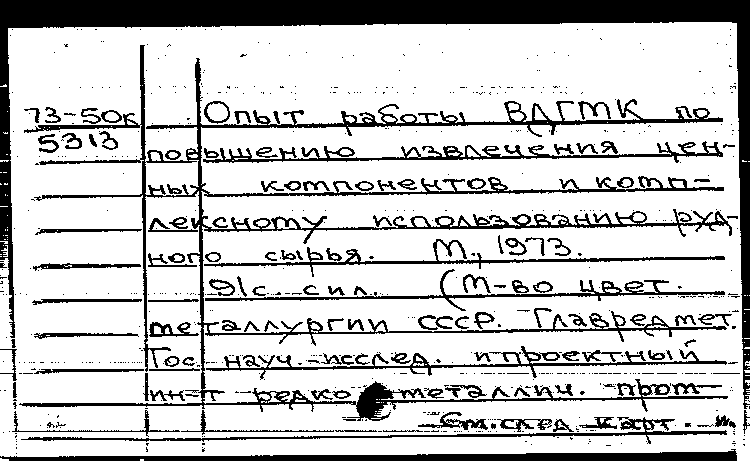 73-50к Опыт работы ВДГМК по
5313 повышению извлечения цен-
ных компонентов и комп-
лексному использованию руд-
ного сырья. М., 1973.
91с. с ил. (М-во цвет.
металлургии СССР. Главредмет.
Гос. науч.-исслед. и проектный
ин-т редкометаллич. пром-
См. след. карт.